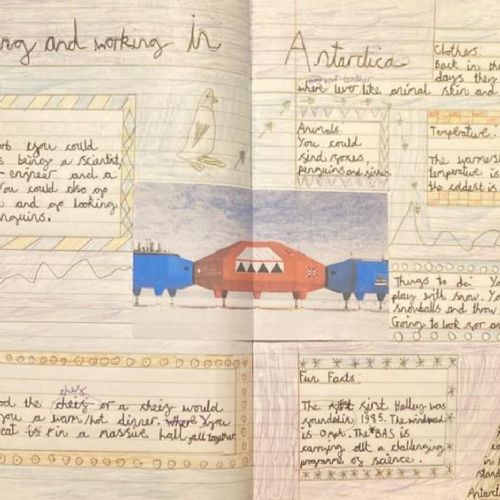 ng and working in Antardica
Clothes.
Back in th
days they
they wool leather
where lever like animal skin and
ob you could
s being a scientist,
engineer and a
You could also go
and go looking
nguins.
Animals.
You could
find foxes,
penguins and
Temperature.
The warmest
temperature is
the coldest is
Things to do. Yo
play with snow. Yo
snowballs and throw
Going to look for an
chef
od the cheif or a cheif would
you a warm/hot dinner. where you
eat is in a massive hall all together.
Fun Facts.
The first Halley was
found in 1985. The windspeed
is 0 mph. The BAS is
carrying out a challenging
programe of science.
A
co
in
stand
Antardic